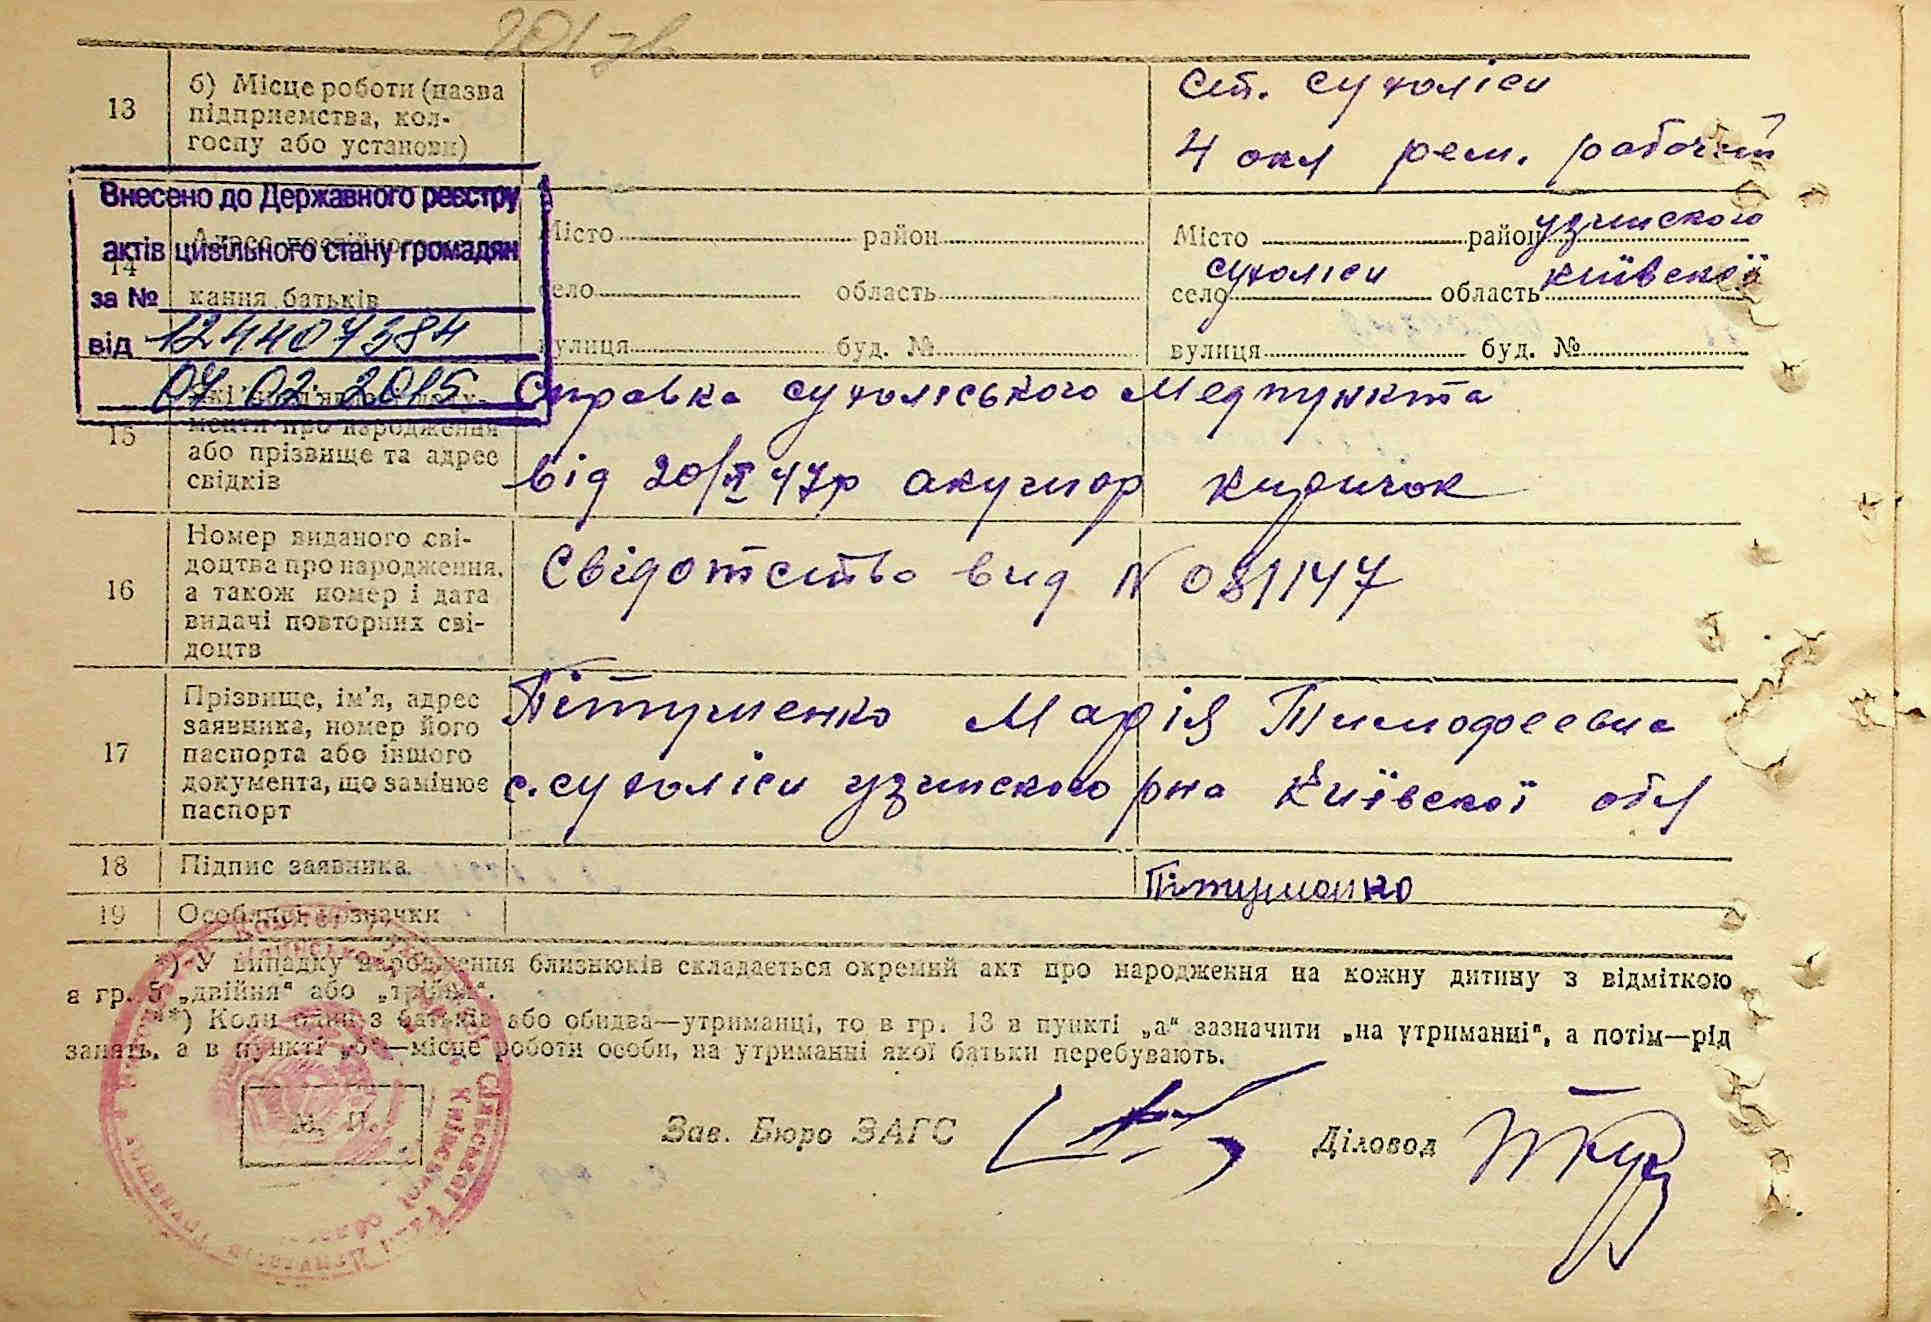 13
б) Місце роботи (назва
підприємства, кол-
госпу або установи)
ст. сухоліси
4 окл рем. рабочий
Внесено до Державного реєстру
актів цивільного стану громадян
за №
від 124407384
07.02.2015
14
кання батьків
Місто район
село область
вулиця буд. №
Місто район узинского
село сухоліси область київскої
вулиця буд. №
15
менти про народження
або прізвище та адрес
свідків
Справка сухоліського Медпункта
від 20/ІІ 47р акушор киричок
16
Номер виданого сві-
доцтва про народження,
а також номер і дата
видачі повторних сві-
доцтв
Свідотство вид N 081147
17
Прізвище, ім'я, адрес
заявника, номер його
паспорта або іншого
документа, що замінює
паспорт
Пітушенко Марія Тимофеевна
с. сухоліси узинского рна Київскої обл
18 Підпис заявника
Пітушенко
19 Особливі відзначки
*) У випадку народження близнюків складається окремий акт про народження на кожну дитину з відміткою
в гр. 5 „двійня“ або „трійня“.
**) Коли один з батьків або обидва—утриманці, то в гр. 13 в пункті „а“ зазначити „на утриманні“, а потім—рід
занять, а в пункті „б“—місце роботи особи, на утриманні якої батьки перебувають.
М. П.
Зав. Бюро ЗАГС
Діловод